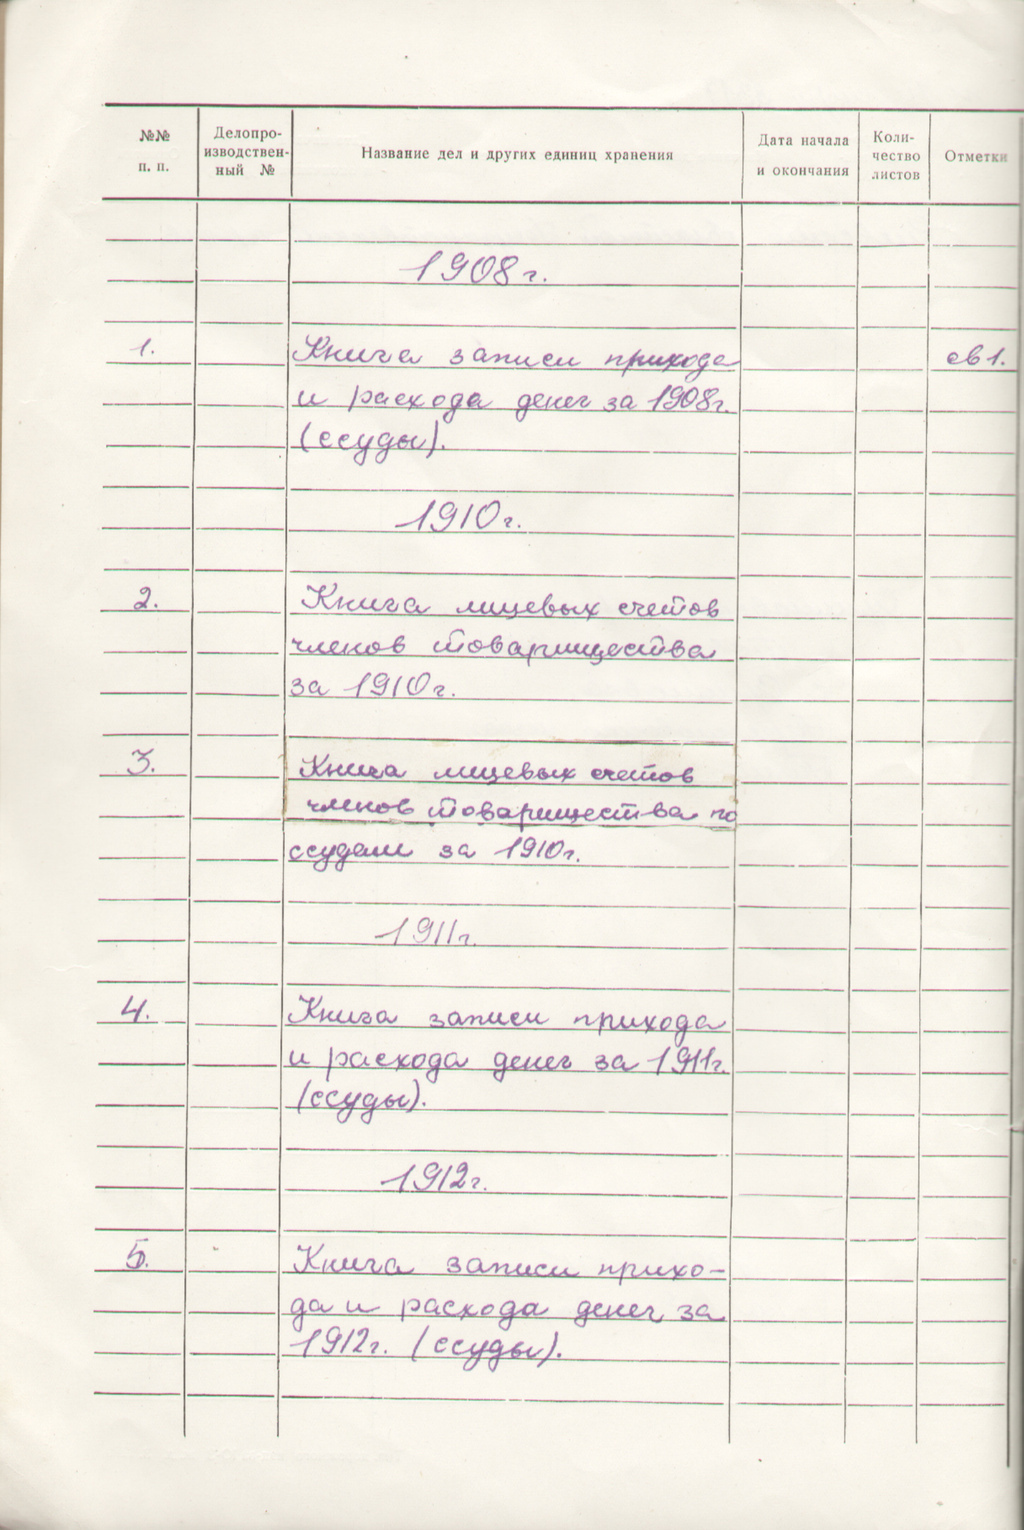 №№
п. п.
Делопро-
изводствен-
ный №
Название дел и других единиц хранения
Дата начала
и окончания
Коли-
чество
листов
Отметки
1908 г.
1.
Книга записи прихода
св 1.
и расхода денег за 1908 г.
(ссуды).
1910 г.
2.
Книга лицевых счетов
членов товарищества
за 1910 г.
3.
Книга лицевых счетов
членов товарищества по
ссудам за 1910 г.
1911 г.
4.
Книга записи прихода
и расхода денег за 1911 г.
(ссуды).
1912 г.
5.
Книга записи прихо-
да и расхода денег за
1912 г. (ссуды).